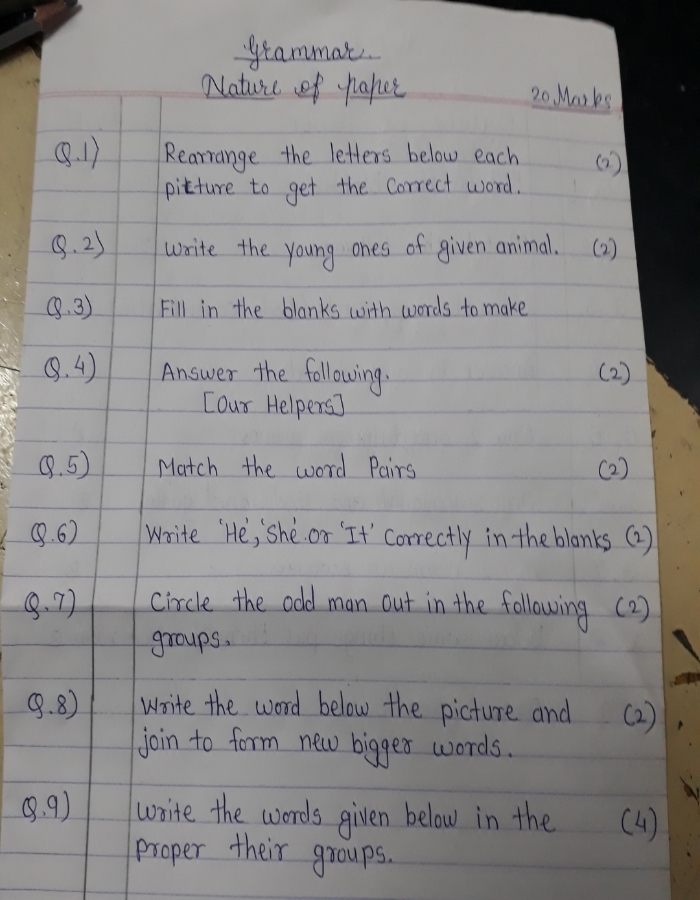 Grammar
Nature of paper
20 Marks
Q.1) Rearrange the letters below each (2)
pitture to get the correct word.
Q.2) Write the young ones of given animal. (2)
Q.3) Fill in the blanks with words to make
Q.4) Answer the following. (2)
[Our Helpers]
Q.5) Match the word Pairs (2)
Q.6) Write 'He', 'She' or 'It' correctly in the blanks (2)
Q.7) Circle the odd man out in the following (2)
groups.
Q.8) Write the word below the picture and (2)
join to form new bigger words.
Q.9) Write the words given below in the (4)
proper their groups.